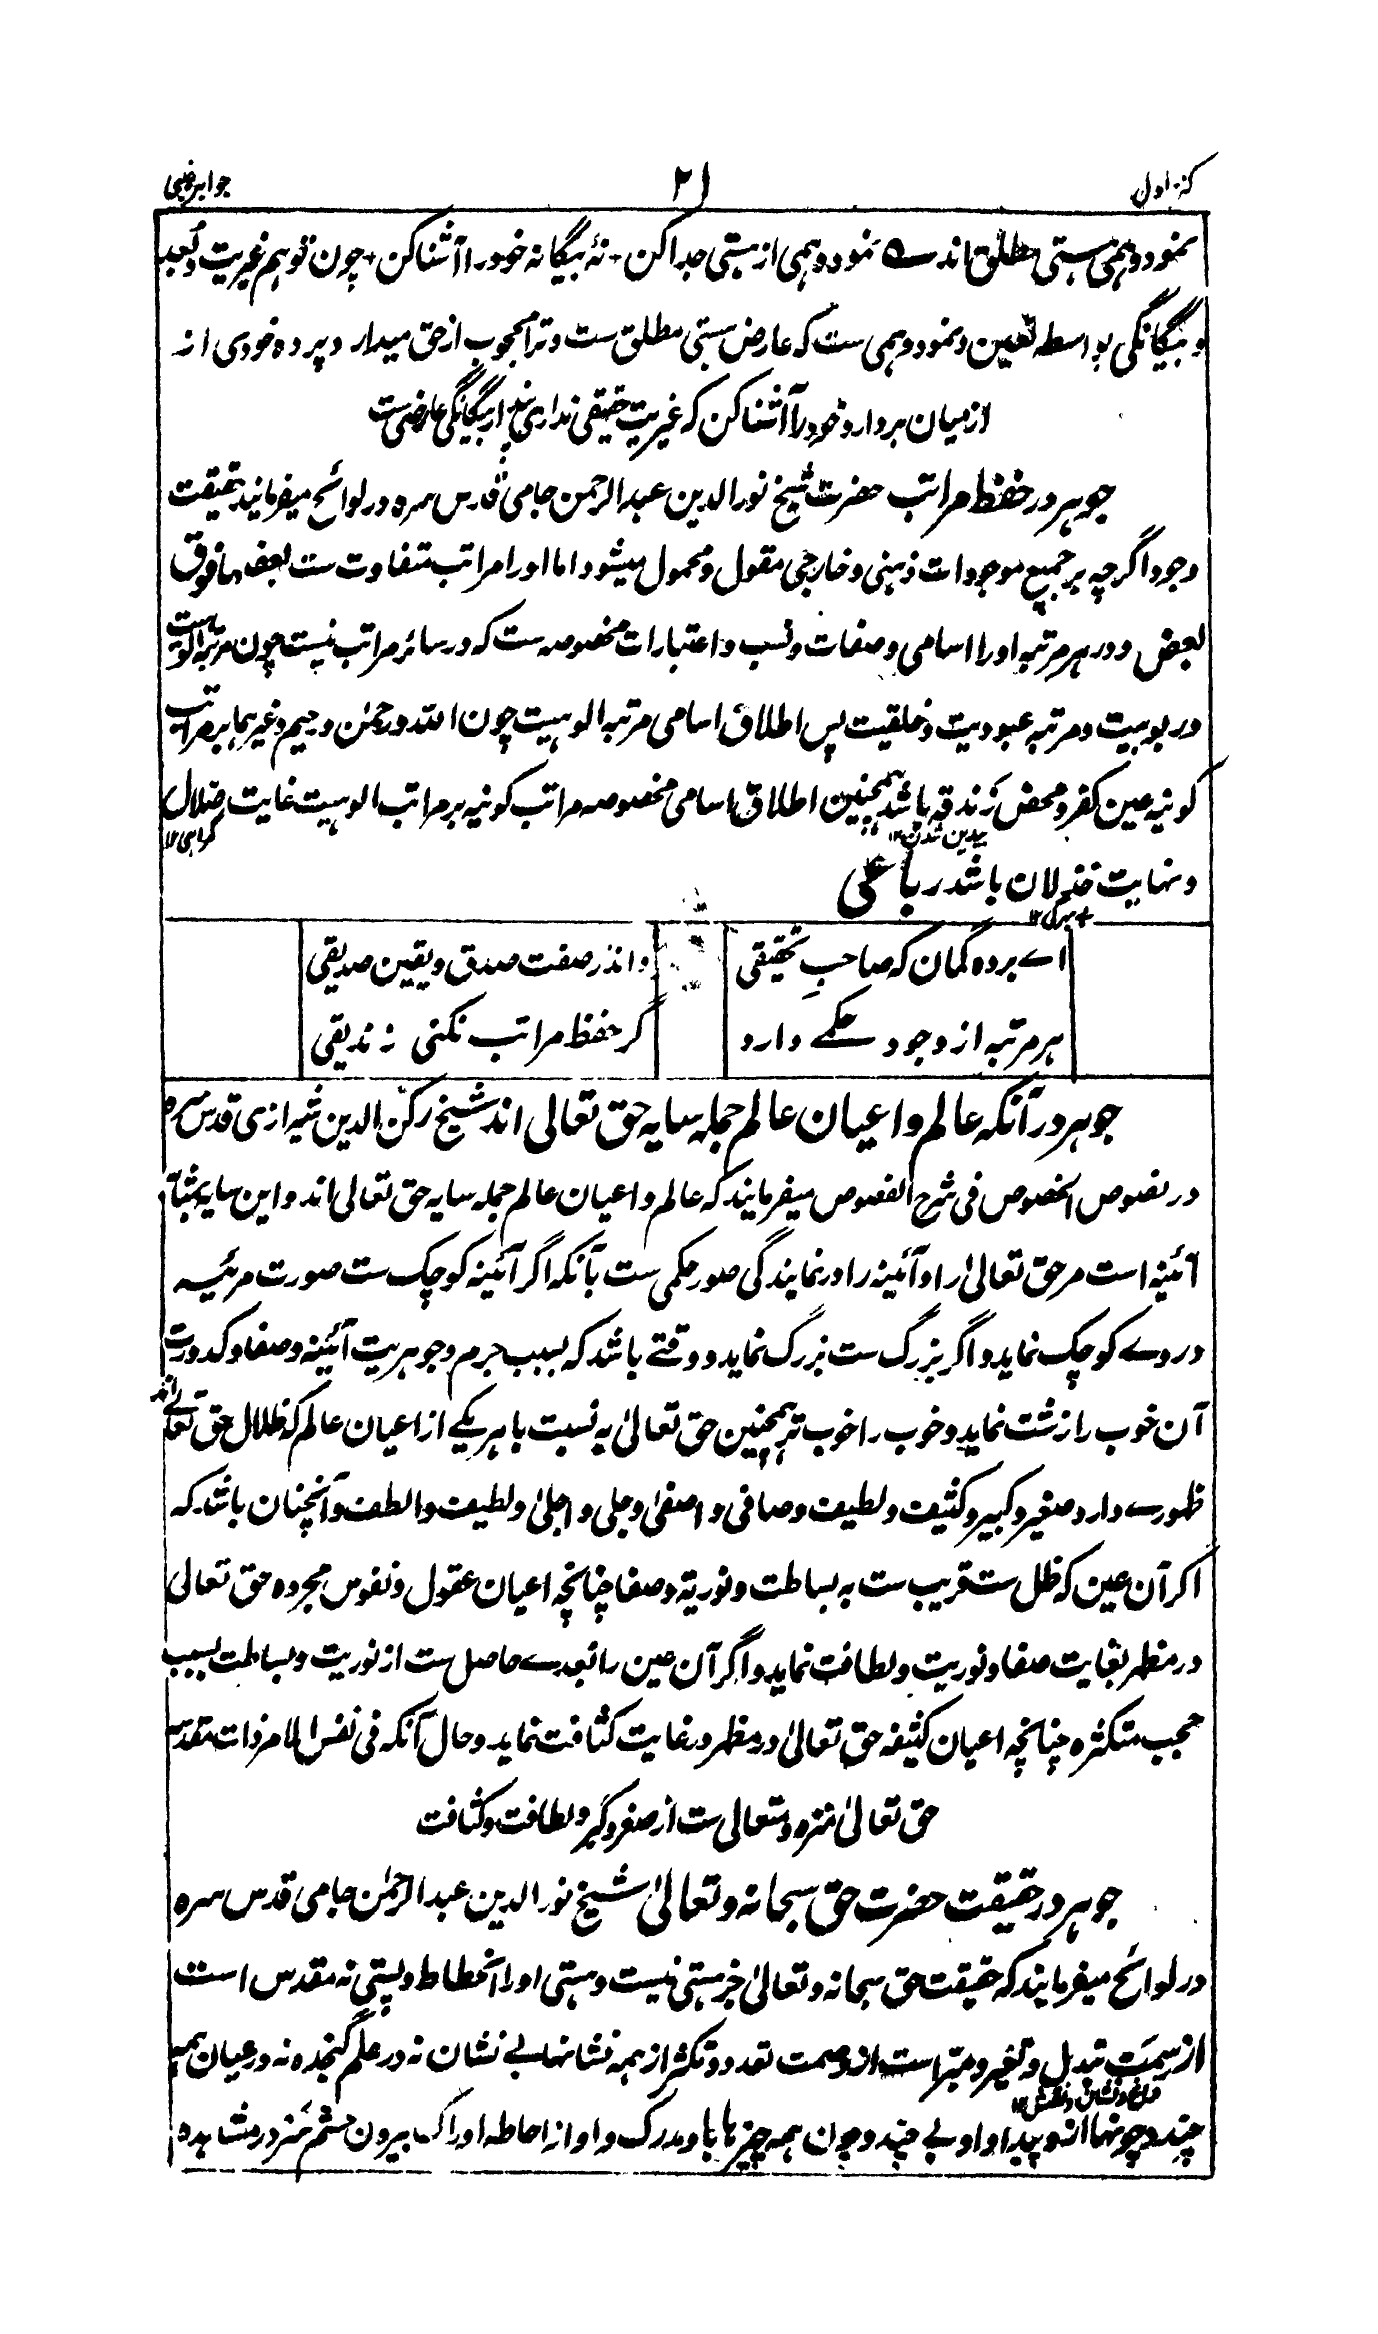 کنز اول
۲۱
جواهر غیبی
نمود وهمی هستی مطلق اند ے نمود وهمی از هستی جدا کن + نهٔ بیگانه خود را آشنا کن + چون توهم غیریت و بُعد
و بیگانگی بواسطه تعین و نمود وهمی ست که عارض هستی مطلق ست و ترا محجوب از حق میدارد پرده خودی از
از میان بردار و خود را آشنا کن که غیریت حقیقی نداری بلکه از بیگانگی عارضی ست
جوهر در حفظ مراتب حضرت شیخ نور الدین عبد الرحمن جامی قدس سره در لوائح میفرمایند حقیقت
وجود اگرچه بر جمیع موجودات ذهنی و خارجی مقول و محمول میشود اما او را مراتب متفاوت ست بعضها فوق
بعض و در هر مرتبه او را اسامی و صفات و نسب و اعتبارات مخصوصه ست که در سائر مراتب نیست چون مرتبه الوهیت
و ربوبیت و مرتبه عبودیت و خلقیت پس اطلاق اسامی مرتبه الوهیت چون الله و رحمٰن و رحیم و غیرهما بر مراتب
کونیه عین کفر و محض زندقه باشد همچنین اطلاق اسامی مخصوصه مراتب کونیه بر مراتب الوهیت غایت ضلال
بیدین شدن ۱۲
گمراهی ۱۲
و نهایت خذلان باشد رباعی
اے برده گمان که صاحبِ تحقیقی
و اندر صفت صدق و یقین صدیقی
هر مرتبه از وجود حکمے دارد
گر حفظ مراتب نکنی زندیقی
جوهر در آنکه عالم و اعیان عالم جمله سایه حق تعالی اند شیخ رکن الدین شیرازی قدس سره
در نصوص الخصوص فی شرح الفصوص میفرمایند که عالم و اعیان عالم جمله سایه حق تعالی اند و این سایه بمثابهٔ
آئینه است مر حق تعالیٰ را و آئینه را در نمایندگی صور حکمی ست بآنکه اگر آئینه کوچک ست صورت مرئیه
در وے کوچک نماید و اگر بزرگ ست بزرگ نماید و وقتے باشد که بسبب جرم و جوهریت آئینه و صفا و کدورت
آن خوب را زشت نماید و خوب را خوب تر همچنین حق تعالیٰ به نسبت با هر یکے از اعیان عالم که ظلال حق تعالے اند
ظهورے دارد صغیر و کبیر و کثیف و لطیف و صافی و اصفیٰ و جلی و اجلیٰ و لطیف و الطف و آنچنان باشد که
اگر آن عین که ظل ست قریب ست به بساطت و نوریة و صفا چنانچه اعیان عقول و نفوس مجرده حق تعالی
در مظهر بغایت صفا و نوریت و لطافت نماید و اگر آن عین را بُعدے حاصل ست از نوریت و بساطت بسبب
حجب متکثره چنانچه اعیان کثیفه حق تعالیٰ در مظهر در غایت کثافت نماید و حال آنکه فی نفس الامر ذات مقدسه
حق تعالیٰ منزه و متعالی ست از صغر و کبر و لطافت و کثافت
جوهر در حقیقت حضرت حق سبحانه و تعالیٰ شیخ نور الدین عبد الرحمٰن جامی قدس سره
در لوائح میفرمایند که حقیقت حق سبحانه و تعالیٰ جز هستی نیست و هستی او را انحطاط و پستی نه مقدس است
از سِمَتِ تبدل و تغیر و مبرا ست از وصمت تعدد و تکثر از همه نشانها بے نشان نه در علم گنجد و نه در عیان همه
داغ و نشان و نقش ۱۲
چند و چونها از و پیدا و او بے چند و چون همه چیزها با و مدرک و او از احاطه ادراک بیرون چشم سر در مشاهده